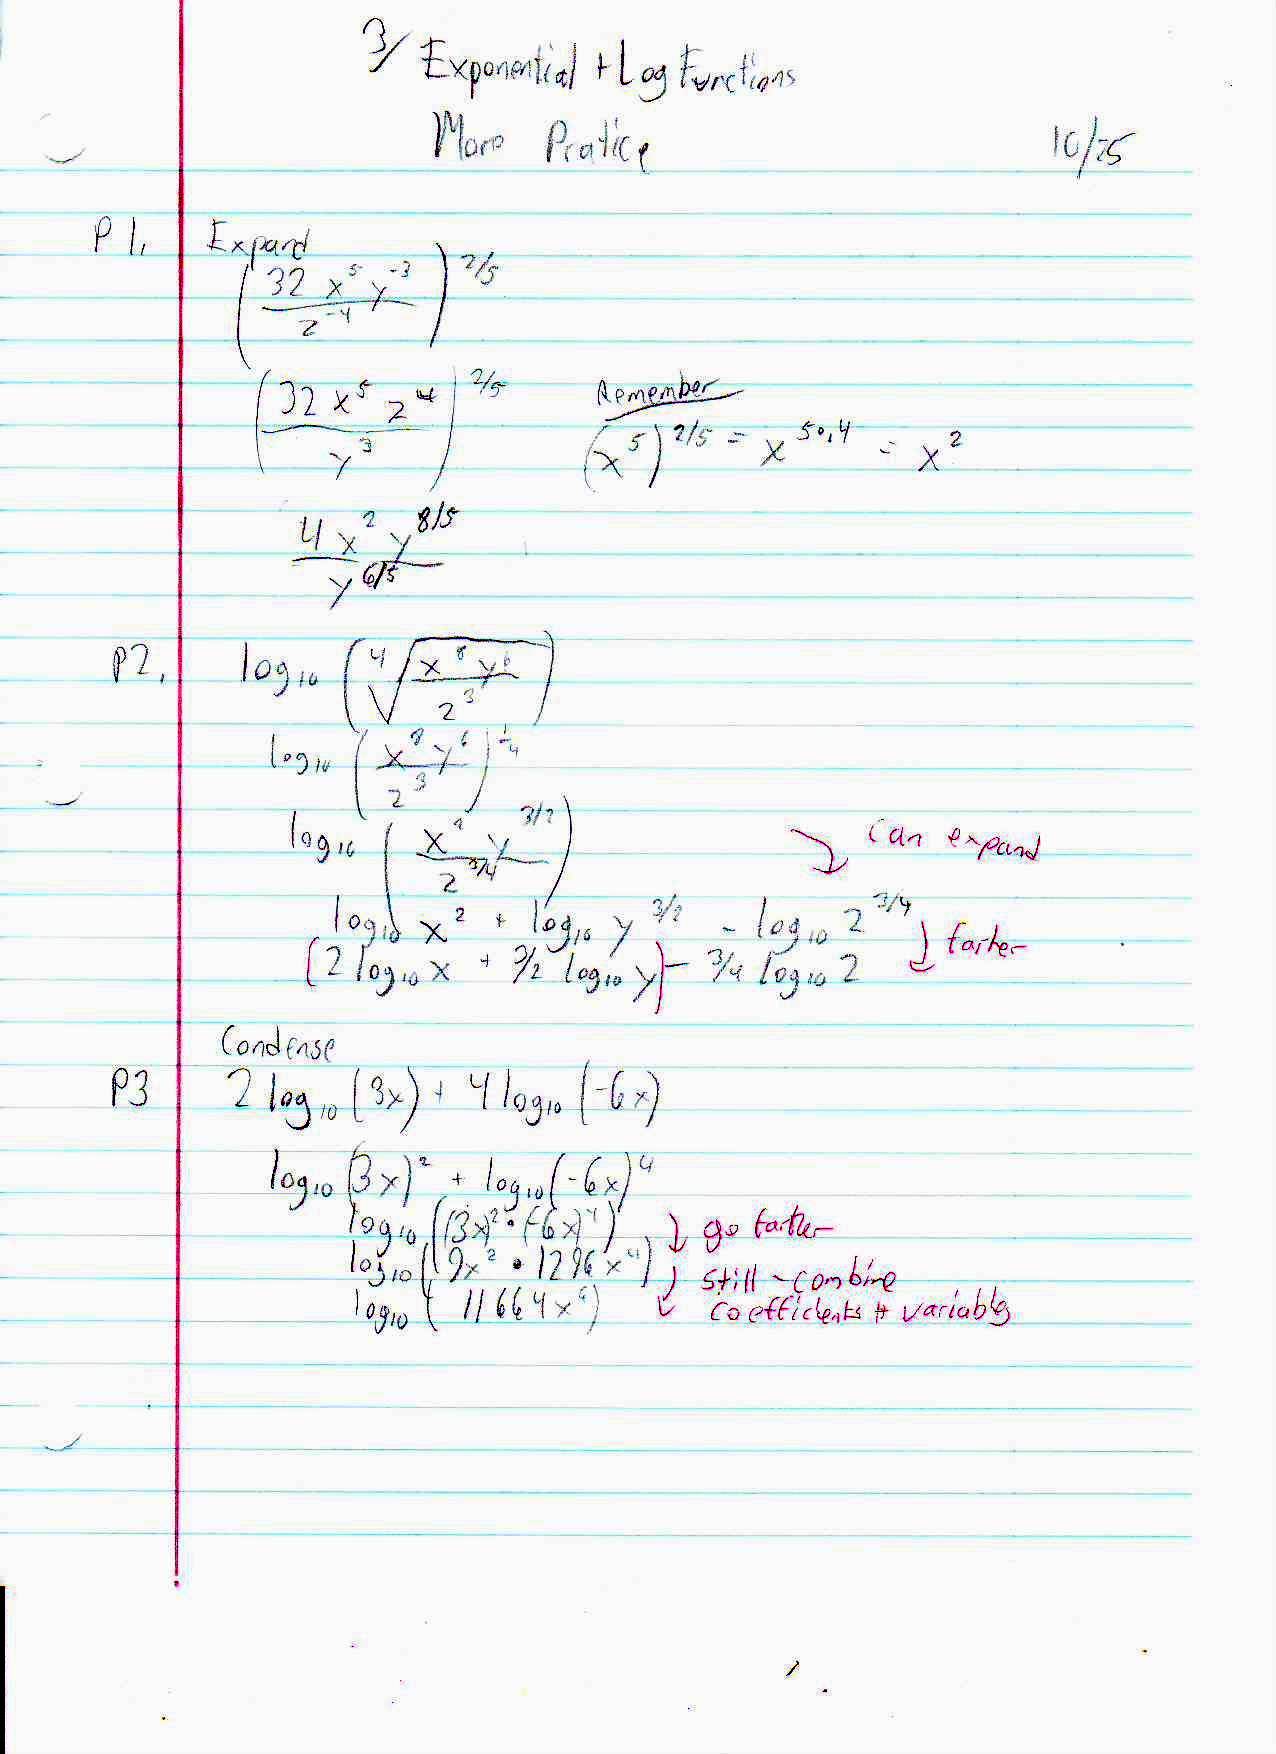 3/ Exponential + Log Functions
More Pratice 10/25
P1. Expand
(32 x^5 y^-3 / z^-4)^2/5
(32 x^5 z^4 / y^3)^2/5
Remember
(x^5)^2/5 = x^5·.4 = x^2
4x^2 y^8/5 / y^6/5
P2. log10 (4√(x^8 y^6 / z^3))
log10 (x^8 y^6 / z^3)^1/4
log10 (x^2 y^3/2 / z^3/4)
Can expand
log10 x^2 + log10 y^3/2 - log10 z^3/4
farther
(2 log10 x + 3/2 log10 y) - 3/4 log10 z
Condense
P3 2 log10 (3x) + 4 log10 (-6x)
log10 (3x)^2 + log10 (-6x)^4
log10 ((3x)^2 • (-6x)^4) go farther
log10 (9x^2 • 1296x^4) still combine
log10 (11664x^6) coefficients + variables